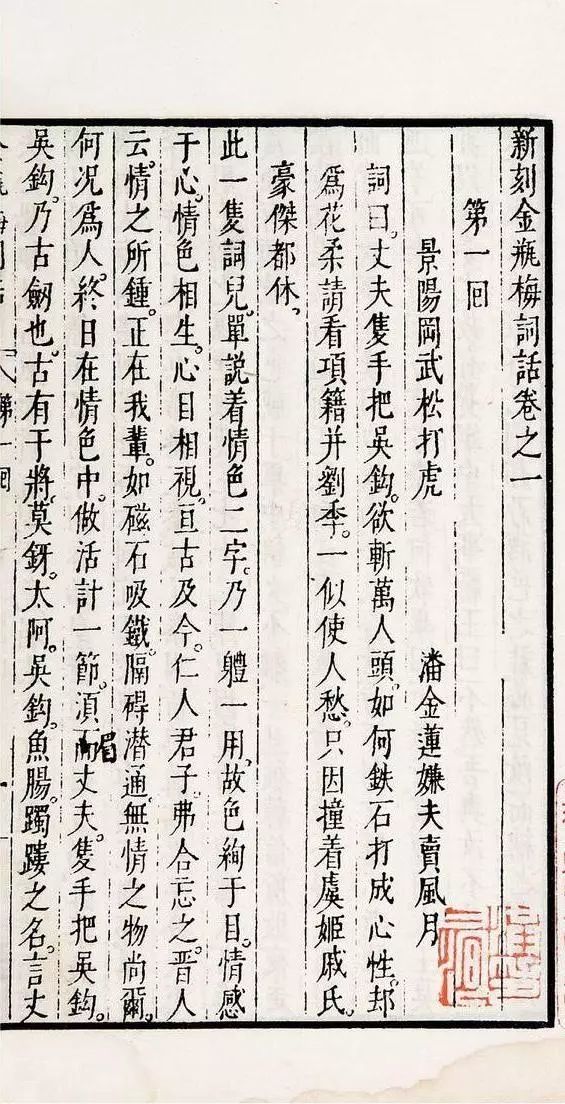 新刻金瓶梅詞話卷之一
第一回
景陽岡武松打虎　潘金蓮嫌夫賣風月
詞曰。丈夫隻手把吳鈎。欲斬萬人頭。如何鉄石打成心性。却
爲花柔請看項籍并劉季。一似使人愁。只因撞着虞姬戚氏。
豪傑都休。
此一隻詞兒。單説着情色二字。乃一體一用。故色絢于目。情感
于心。情色相生。心目相視。亘古及今。仁人君子。弗合忘之。晋人
云。情之所鍾。正在我輩。如磁石吸鐵。隔碍潜通。無情之物尚爾。
何况爲人。終日在情色中。做活計一節。須而丈夫隻手把吳鈎。
吳鈎。乃古劒也。古有于將。莫釾。太阿。吳鈎。魚腸。躅踛之名。言丈
第一回